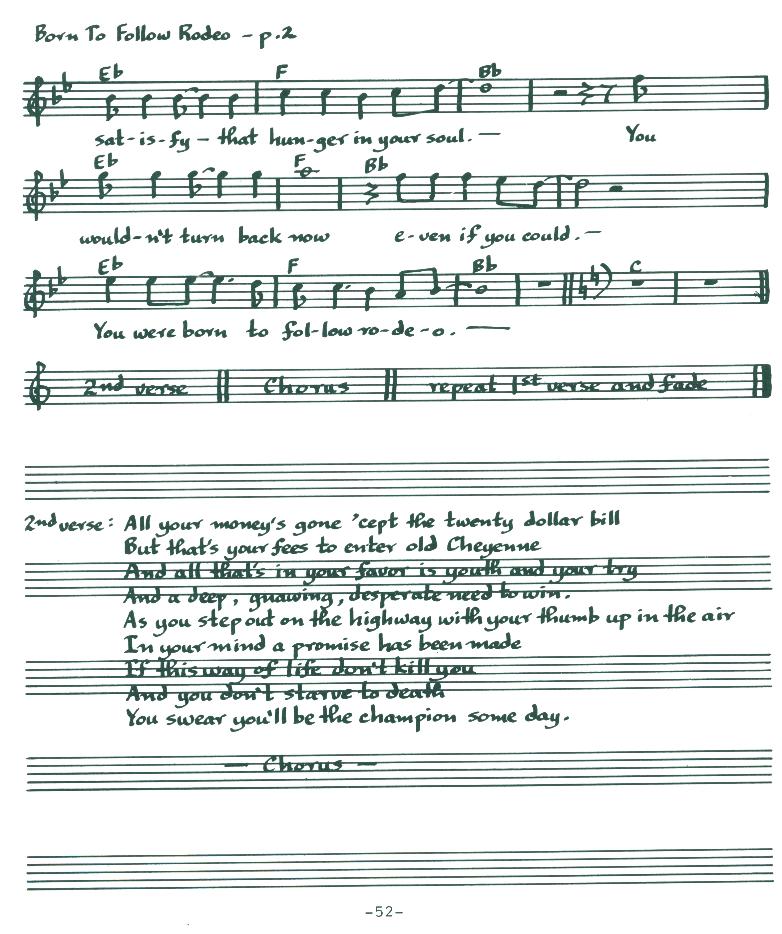 Born To Follow Rodeo - p.2
Eb F Bb
sat-is-fy - that hun-ger in your soul. — You
Eb F Bb
would-n't turn back now e-ven if you could. —
Eb F Bb C
You were born to fol-low ro-de-o. —
2nd verse Chorus repeat 1st verse and fade
2nd verse: All your money's gone 'cept the twenty dollar bill
But that's your fees to enter old Cheyenne
And all that's in your favor is youth and your try
And a deep, gnawing, desperate need to win.
As you step out on the highway with your thumb up in the air
In your mind a promise has been made
If this way of life don't kill you
And you don't starve to death
You swear you'll be the champion some day.
— Chorus —
-52-